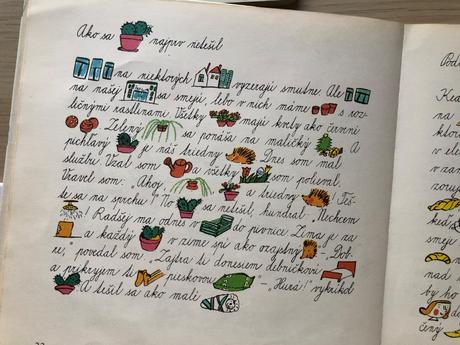 Ako sa najprv netešil
na niektorých vyzerajú smutne. Ale
na našej sa smejú, lebo v nich máme s roz-
ličnými rastlinami. Všetky majú kvety ako červené
Zelený sa ponáša na maličký A
pichľavý je náš triedny Dnes som mal
službu. Vzal som a všetky som polieval.
Vravel som: „Ahoj, a triedny Teš-
te sa na sprchu!" To sa netešil, hundral: „Nechcem
! Radšej ma odnes v do pivnice. Zima je za
a každý v zime spí ako ozajstný – „Dob-
re, povedal som. „Zajtra ti donesiem debničkovú
a prikryjem ti pieskovou – „Hurá!" vykríkol
A tešil sa ako malé
Pod
Kea
na
v
ked
smeje
nad
by ho
čený